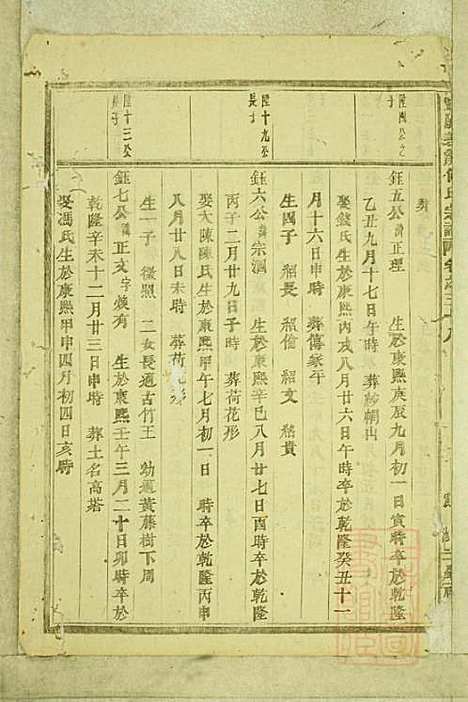 鈺五公諱正理 生於康熙庚辰九月初一日寅時卒於乾隆
乙丑九月十七日午時 葬紗帽山
娶錢氏生於康熙丙戌八月廿六日午時卒於乾隆癸丑十一
月十六日申時 葬傅家午
生四子 紹長 紹倫 紹文 紹貴
陞十九公
長子
鈺六公諱宗泗 生於康熙辛巳八月廿七日酉時卒於乾隆
丙子二月廿九日子時 葬荷花形
娶大陳陳氏生於康熙甲午七月初一日 時卒於乾隆丙申
八月廿八日未時 葬荷花形
生一子 徵照 二女長適古竹王 幼適黃藤樹下周
陞十三公
鈺七公諱正文字煥有 生於康熙壬午三月二十日卯時卒於
乾隆辛未十二月廿三日申時 葬土名高塔
娶馮氏生於康熙甲申四月初四日亥時